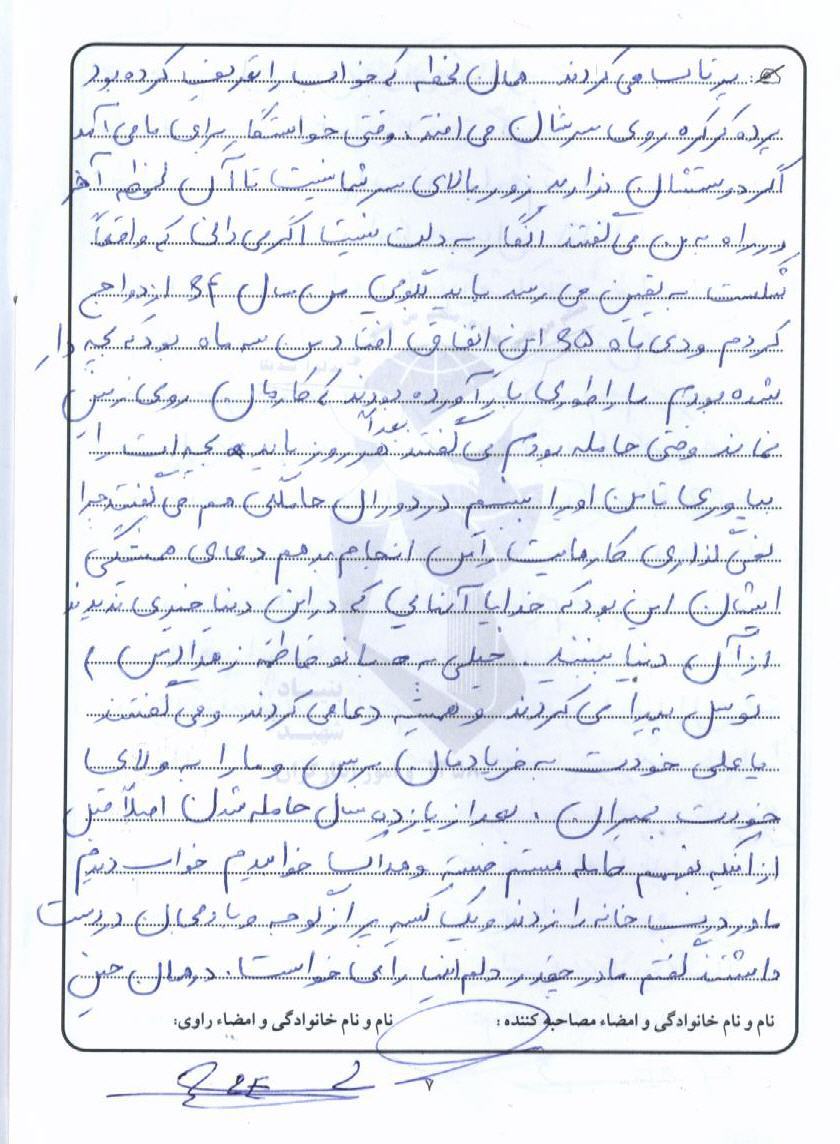 پرتاب می کردند همان لحظه که خواب را تعریف کرده بود
پرده کرکره روی سرشان می افتد. وقتی خواستگار برای ما می آمد
اگر دوستشان ندارید زور بالای سر شما نیست تا آن لحظه آخر
در راه به من می گفتند انگار به دلت نیست اگر می دانی که واقعاً
شکست به یقین می رسد باید بگویی من سال 64 ازدواج
کردم و دی ماه 65 این اتفاق افتاد من سه ماه بود که بچه دار
شده بودم ما را طوری بار آورده بودند که کارمان روی زمین
نماند وقتی حامله بودم می گفتند بعداً هر روز باید بچه ات را
بیاوری تا من او را ببینم در دوران حاملگی هم می گفتند چرا
نمی گذاری کارهایت را من انجام بدهم دعای همیشگی
ایشان این بود که خدایا آنهایی که در این دنیا خیری ندیدند
از آن دنیا ببینند. خیلی به بانو فاطمه زهرا (س)
توسل پیدا می کردند و همیشه دعا می کردند و می گفتند
یا علی خودت به فریادمان برس و ما را به ولای
خودت بمیران. بعد از یازده سال حامله شدن اصلاً قبل
از اینکه بفهمم حامله هستم خواب دیدم
مادر درب خانه را زدند و یک کیسه پر از گوجه و بادمجان در دست
داشتند گفتم مادر چقدر دلم اینها را می خواست. در همان حین
نام و نام خانوادگی و امضاء مصاحبه کننده: نام و نام خانوادگی و امضاء راوی:
۷